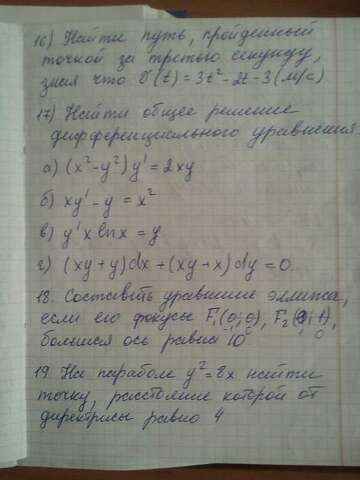 16) Найти путь, пройденный
точкой за третью секунду,
зная что V(t) = 3t² - 2t - 3 (м/с)
17) Найти общее решение
дифференциального уравнения.
а) (x² - y²) y' = 2xy
б) xy' - y = x²
в) y' x ln x = y
г) (xy + y)dx + (xy + x)dy = 0.
18. Составить уравнение эллипса,
если его фокусы F₁(0, 0), F₂(
большая ось равна 10
19. На параболе y² = 8x найти
точку, расстояние которой от
директрисы равно 4